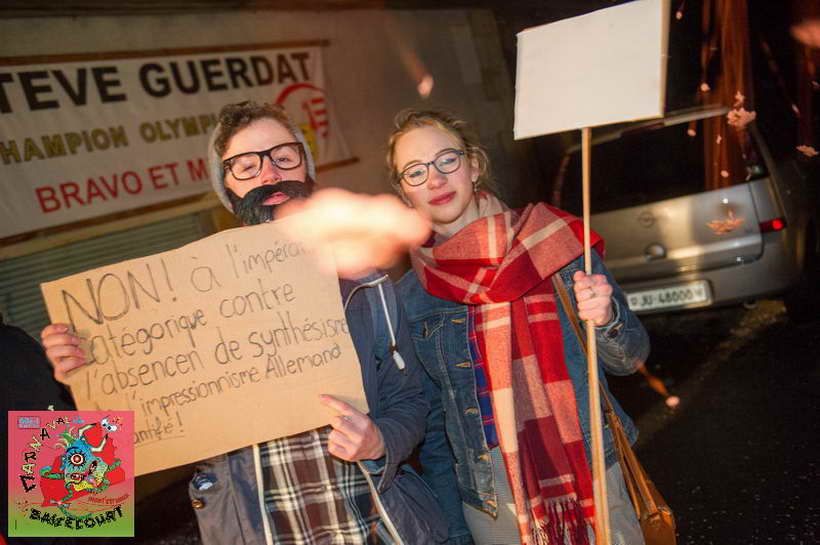 TEVE GUERDAT
CHAMPION OLYMPI
BRAVO ET M
NON! à l'impéra
catégorique contre
l'absencen de synthésisme
l'impressionnisme Allemand
JU·48000
CARNAVAL
BASSECOURT